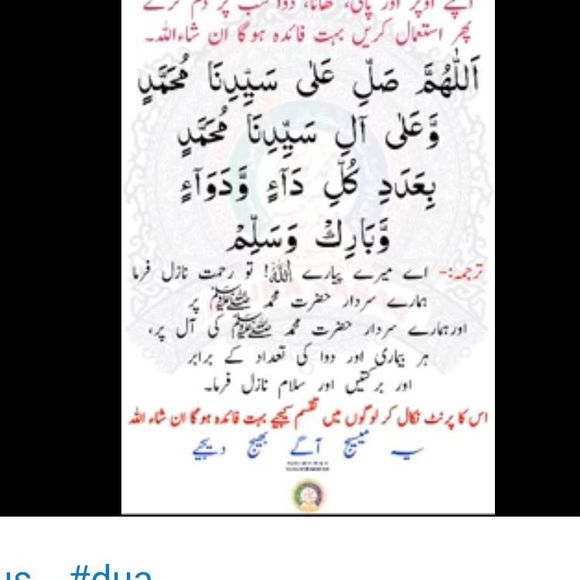 اپنے اوپر اور پانی، کھانا، دوا سب پر دم کرکے
پھر استعمال کریں بہت فائدہ ہوگا ان شاءاللہ۔
اَللّٰهُمَّ صَلِّ عَلٰى سَيِّدِنَا مُحَمَّدٍ
وَّعَلٰى آلِ سَيِّدِنَا مُحَمَّدٍ
بِعَدَدِ كُلِّ دَآءٍ وَّدَوَآءٍ
وَّبَارِكْ وَسَلِّمْ
ترجمہ:- اے میرے پیارے اللہ! تو رحمت نازل فرما
ہمارے سردار حضرت محمد ﷺ پر
اور ہمارے سردار حضرت محمد ﷺ کی آل پر،
ہر بیماری اور دوا کی تعداد کے برابر
اور برکتیں اور سلام نازل فرما۔
اس کا پرنٹ نکال کر لوگوں میں تقسیم کیجیے بہت فائدہ ہوگا ان شاء اللہ
یہ میسیج آگے بھیج دیجیے
us #dua